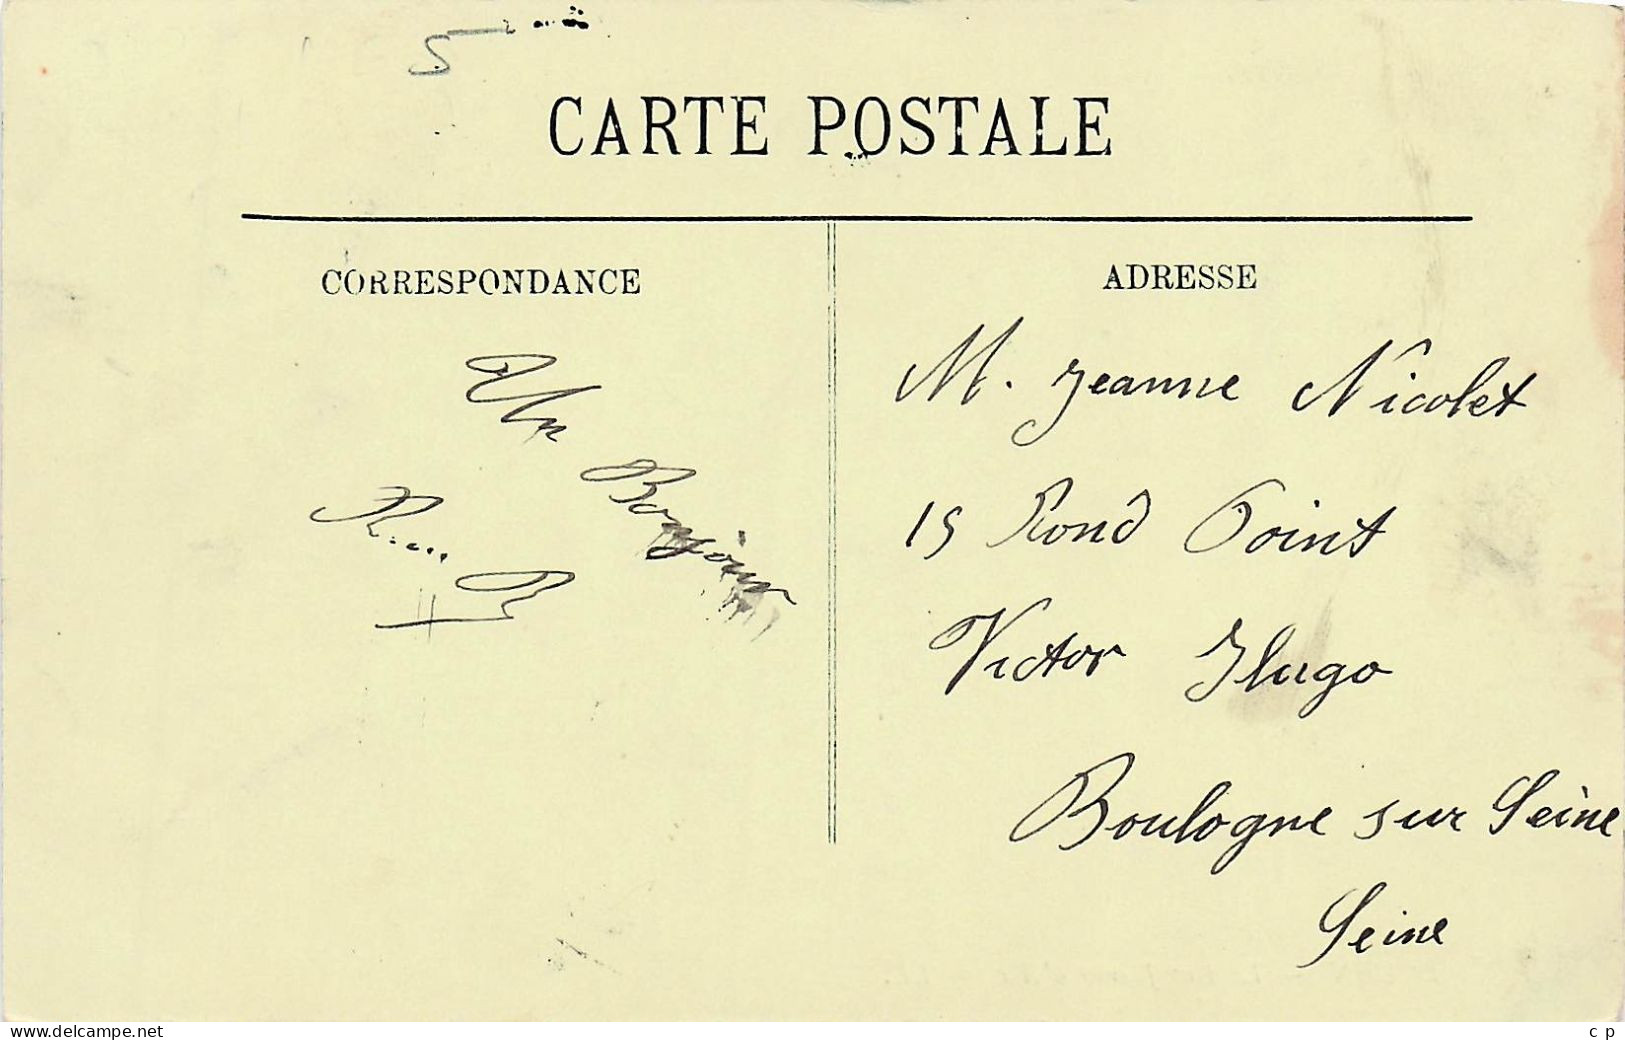 5
CARTE POSTALE
CORRESPONDANCE
Un
Bonjour
ADRESSE
M. Jeanne Nicolet
15 Rond Point
Victor Hugo
Boulogne sur Seine
Seine
www.delcampe.net
c p